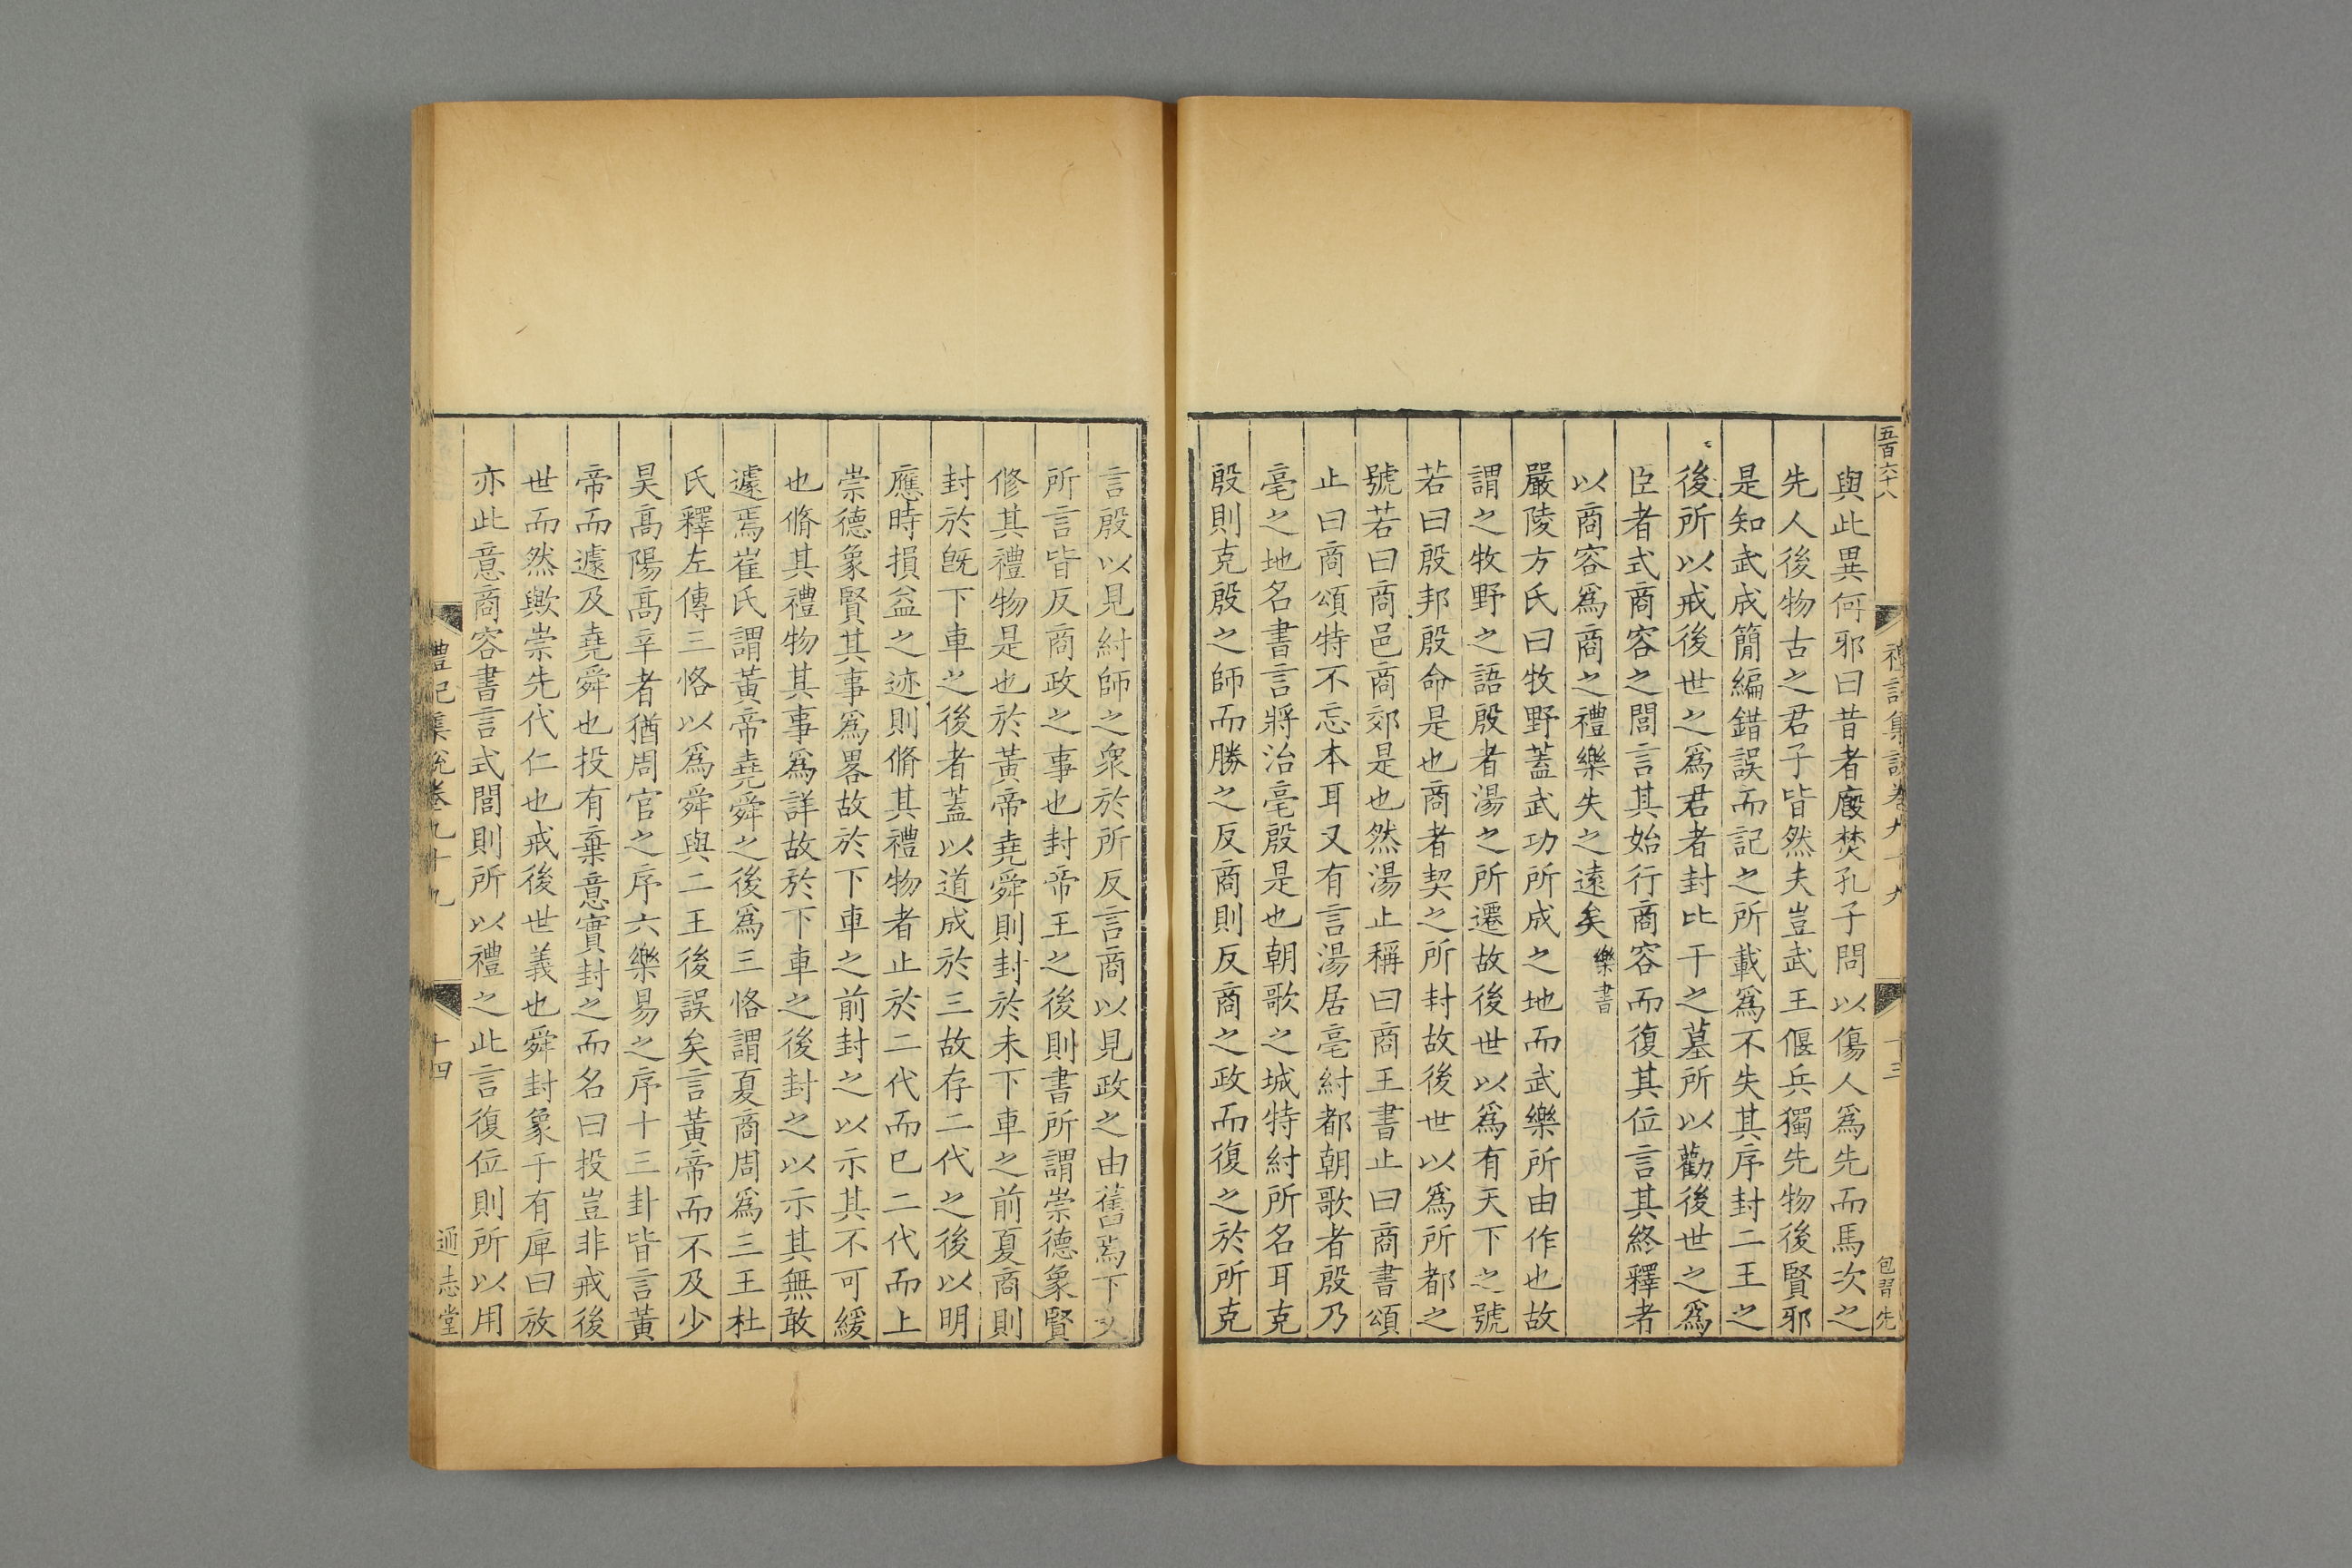 五百六十八
禮記集說卷九十九
十三
包習先
與此異何邪曰昔者廄焚孔子問以傷人爲先而馬次之
先人後物古之君子皆然夫豈武王偃兵獨先物後賢邪
是知武成簡編錯誤而記之所載爲不失其序封二王之
後所以戒後世之爲君者封比干之墓所以勸後世之爲
臣者式商容之閭言其始行商容而復其位言其終釋者
以商容爲商之禮樂失之遠矣樂書
嚴陵方氏曰牧野蓋武功所成之地而武樂所由作也故
謂之牧野之語殷者湯之所遷故後世以爲有天下之號
若曰殷邦殷命是也商者契之所封故後世以爲所都之
號若曰商邑商郊是也然湯止稱曰商王書止曰商書頌
止曰商頌特不忘本耳又有言湯居亳紂都朝歌者殷乃
亳之地名書言將治亳殷是也朝歌之城特紂所名耳克
殷則克殷之師而勝之反商則反商之政而復之於所克
言殷以見紂師之衆於所反言商以見政之由舊焉下文
所言皆反商政之事也封帝王之後則書所謂崇德象賢
修其禮物是也於黃帝堯舜則封於未下車之前夏商則
封於旣下車之後者蓋以道成於三故存二代之後以明
應時損益之迹則脩其禮物者止於二代而已二代而上
崇德象賢其事爲畧故於下車之前封之以示其不可緩
也脩其禮物其事爲詳故於下車之後封之以示其無敢
遽焉崔氏謂黃帝堯舜之後爲三恪謂夏商周爲三王杜
氏釋左傳三恪以爲舜與二王後誤矣言黃帝而不及少
昊高陽高辛者猶周官之序六樂易之序十三卦皆言黃
帝而遽及堯舜也投有棄意實封之而名曰投豈非戒後
世而然歟崇先代仁也戒後世義也舜封象于有庳曰放
亦此意商容書言式閭則所以禮之此言復位則所以用
禮記集說卷九十九
十四
通志堂